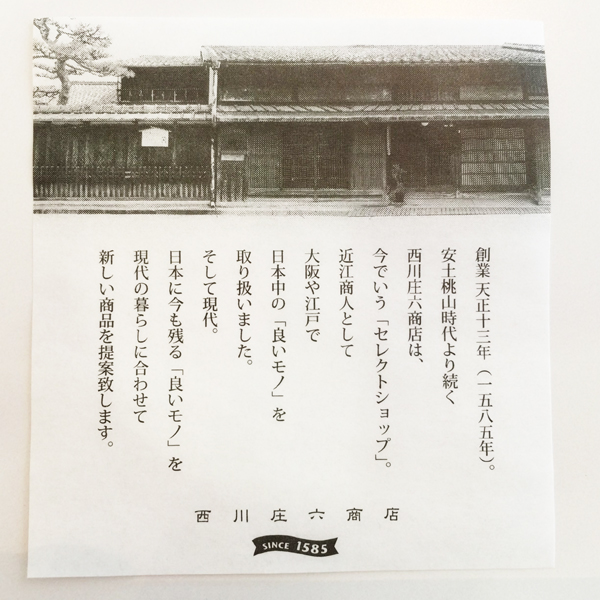 創業 天正十三年（一五八五年）。
安土桃山時代より続く
西川庄六商店は、
今でいう「セレクトショップ」。
近江商人として
大阪や江戸で
日本中の「良いモノ」を
取り扱いました。
そして現代。
日本に今も残る「良いモノ」を
現代の暮らしに合わせて
新しい商品を提案致します。
西川庄六商店
SINCE 1585